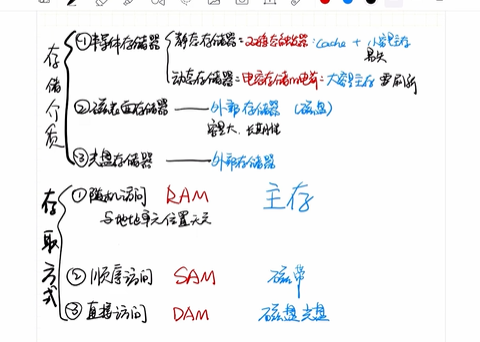 存储介质
①半导体存储器
静态存储器=双稳态触发器: cache + 小容量主存
易失
动态存储器=电容存储电荷: 大容量主存 需刷新
②磁表面存储器 —— 外部存储器（磁盘）
容量大、长期性
③光盘存储器 —— 外部存储器
存取方式
①随机访问 RAM 主存
与地址单元位置无关
②顺序访问 SAM 磁带
③直接访问 DAM 磁盘光盘